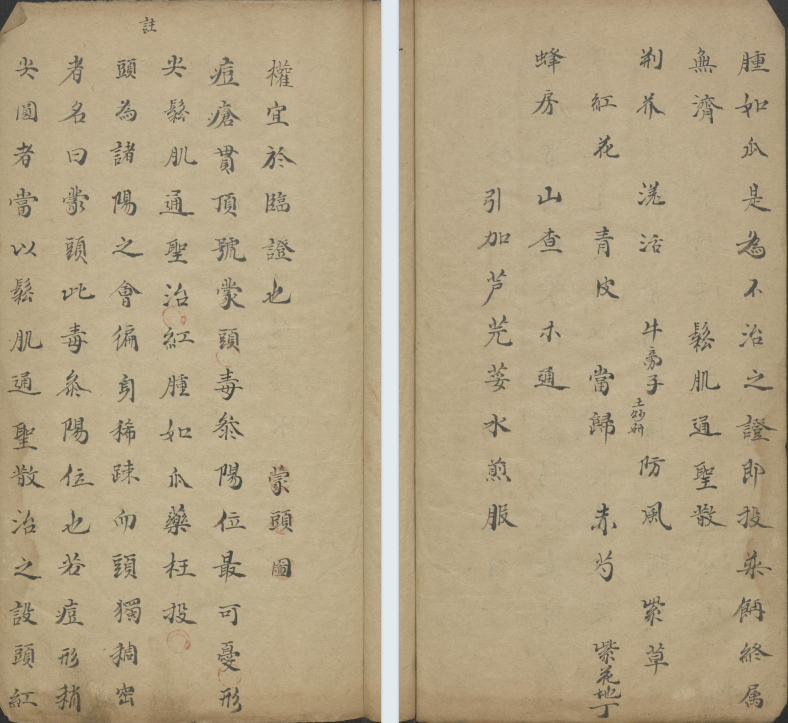 權宜於臨證也 蒙頭圖
痘瘡貫頂號蒙頭毒叅陽位最可憂形
尖鬆肌通聖治紅腫如瓜藥枉投
註
頭為諸陽之會徧身稀踈而頭獨稠密
者名曰蒙頭此毒叅陽位也若痘形稍
尖圓者當以鬆肌通聖散治之設頭紅
腫如瓜是為不治之證即投藥餌終属
無濟 鬆肌通聖散
荆芥 羗活 牛旁子土炒研 防風 紫草
紅花 青皮 當歸 赤芍 紫花地丁
蜂房 山查 木通
引加芦芫荽水煎服